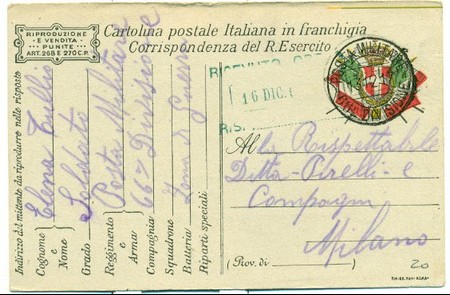 RIPRODUZIONE
E VENDITA
PUNITE
ART. 268 E 270 C.P.
Cartolina postale Italiana in franchigia
Corrispondenza del R. Esercito
POSTA MILITARE
RICEVUTO
16 DIC.
RIS.
Alla Rispettabile
Ditta Pirelli e
Compagni
Milano
(Prov. di)
20
Indirizzo del mittente da riprodurre nelle risposte
Cognome e Nome Elena Tullio
Grado Soldato
Reggimento e Arma Posta Militare
Compagnia 66ª Divisione
Squadrone
Batteria Zona di Guerra
Riparti speciali